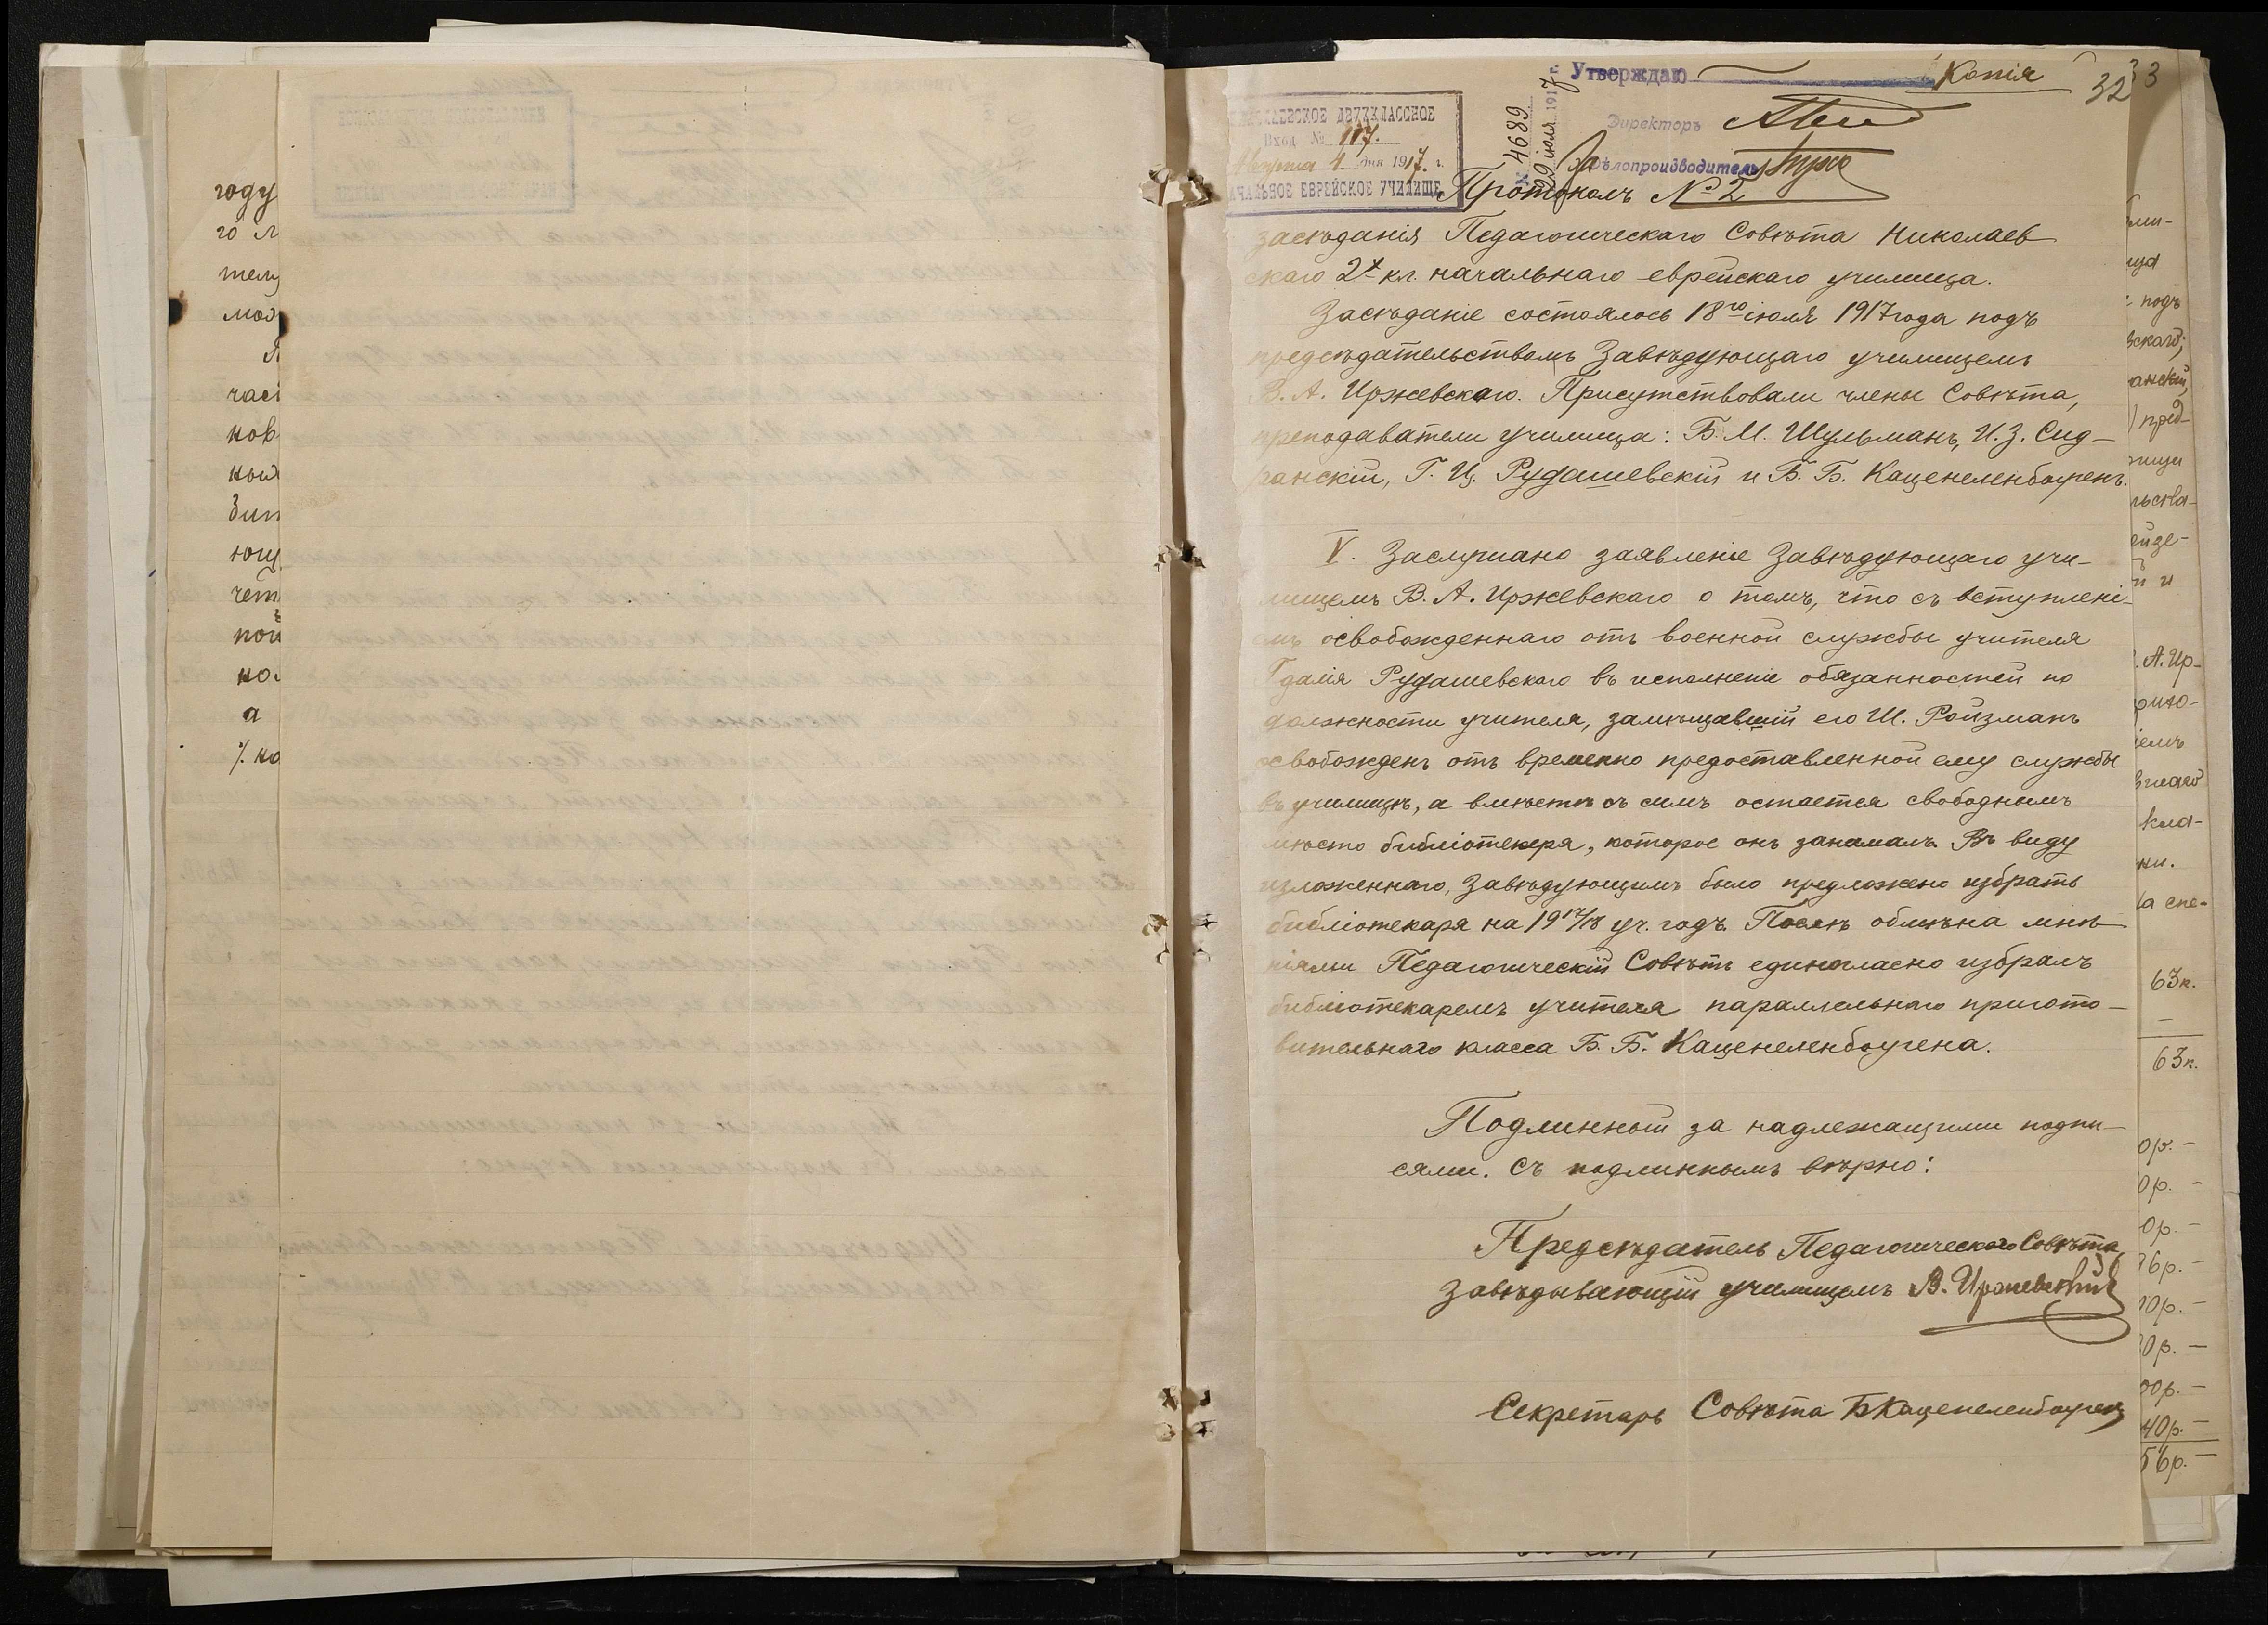 году
го л
ков
а
Утверждаю
Копія
32
33
НИКОЛАЕВСКОЕ ДВУХКЛАССНОЕ
Вход № 117.
Августа 4 дня 1917 г.
НАЧАЛЬНОЕ ЕВРЕЙСКОЕ УЧИЛИЩЕ
№ 4689
29 іюля 1917 г.
Директоръ
За Дѣлопроизводитель
Протоколъ № 2
засѣданія Педагогическаго Совѣта Николаев
скаго 2х кл. начальнаго еврейскаго училища.
Засѣданіе состоялось 18го іюля 1917 года подъ
предсѣдательствомъ Завѣдующаго училищемъ
В. А. Иржевскаго. Присутствовали члены Совѣта,
преподаватели училища: Б. М. Шульманъ, И. З. Сид-
ранскій, Г. Ц. Рудашевскій и Б. Б. Каценеленбогенъ.
V. Заслушано заявленіе Завѣдующаго учи-
лищемъ В. А. Иржевскаго о томъ, что съ вступлені-
емъ освобожденнаго отъ военной службы учителя
Гдалія Рудашевскаго въ исполненіе обязанностей по
должности учителя, замѣщавшій его Ш. Ройзманъ
освобожденъ отъ временно предоставленной ему службы
въ училищѣ, а вмѣстѣ съ симъ остается свободнымъ
мѣсто библіотекаря, которое онъ занималъ. Въ виду
изложеннаго, Завѣдующимъ было предложено избрать
библіотекаря на 1917/18 уч. годъ. Послѣ обмѣна мнѣ-
ніями Педагогическій Совѣтъ единогласно избралъ
библіотекаремъ учителя параллельнаго пригото-
вительнаго класса Б. Б. Каценеленбогена.
Подлинный за надлежащими подпи-
сями. Съ подлиннымъ вѣрно:
Предсѣдатель Педагогическаго Совѣта,
Завѣдывающій училищемъ В. Иржевскій
Секретарь Совѣта Б Каценеленбогенъ
подъ
вскаго;
пред-
А. Ир-
кла-
ки.
63к.
63к.
0р. -
0р. -
0р. -
6р. -
0р. -
0р. -
00р. -
40р. -
56р. -